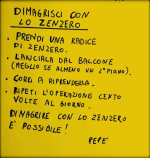 DIMAGRISCI CON
LO ZENZERO
• PRENDI UNA RADICE
DI ZENZERO.
• LANCIALA DAL BALCONE
(MEGLIO SE ALMENO UN 2° PIANO).
• CORRI A RIPRENDERLA.
• RIPETI L'OPERAZIONE CENTO
VOLTE AL GIORNO.
DIMAGRIRE CON LO ZENZERO
E' POSSIBILE!
PEPE'